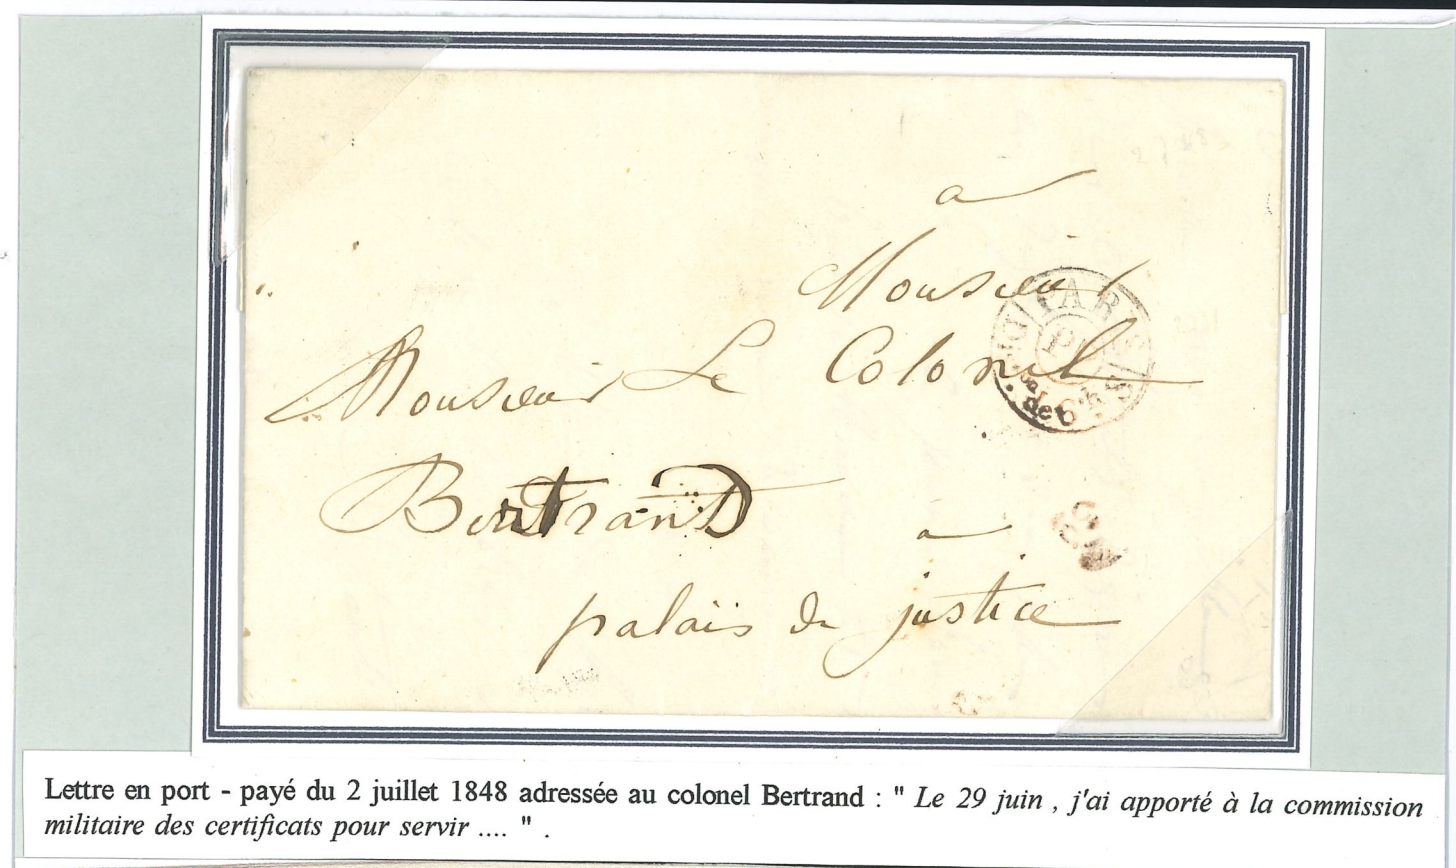 a
Monsieur
Monsieur Le Colonel
Bertrand
a
palais de justice
PARIS
Lettre en port - payé du 2 juillet 1848 adressée au colonel Bertrand : " Le 29 juin , j'ai apporté à la commission
militaire des certificats pour servir .... " .